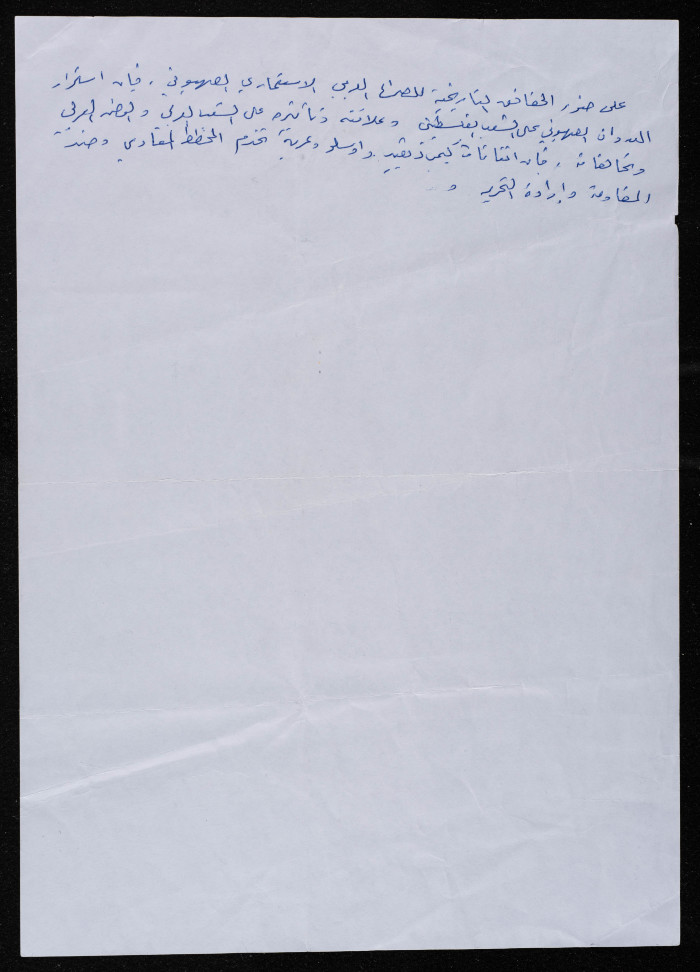 على ضوء الحقائق التاريخية للصراع العربي الاستعماري الصهيوني ، فإن استمرار
العدوان الصهيوني على الشعب الفلسطيني وعلاقته وتأثيره على الشعب العربي والوطن العربي
، فإن اتفاقات كيمب ديفيد واوسلو وعربة تخدم المخطط المعادي وضد
المقاومة وإرادة التحرير و